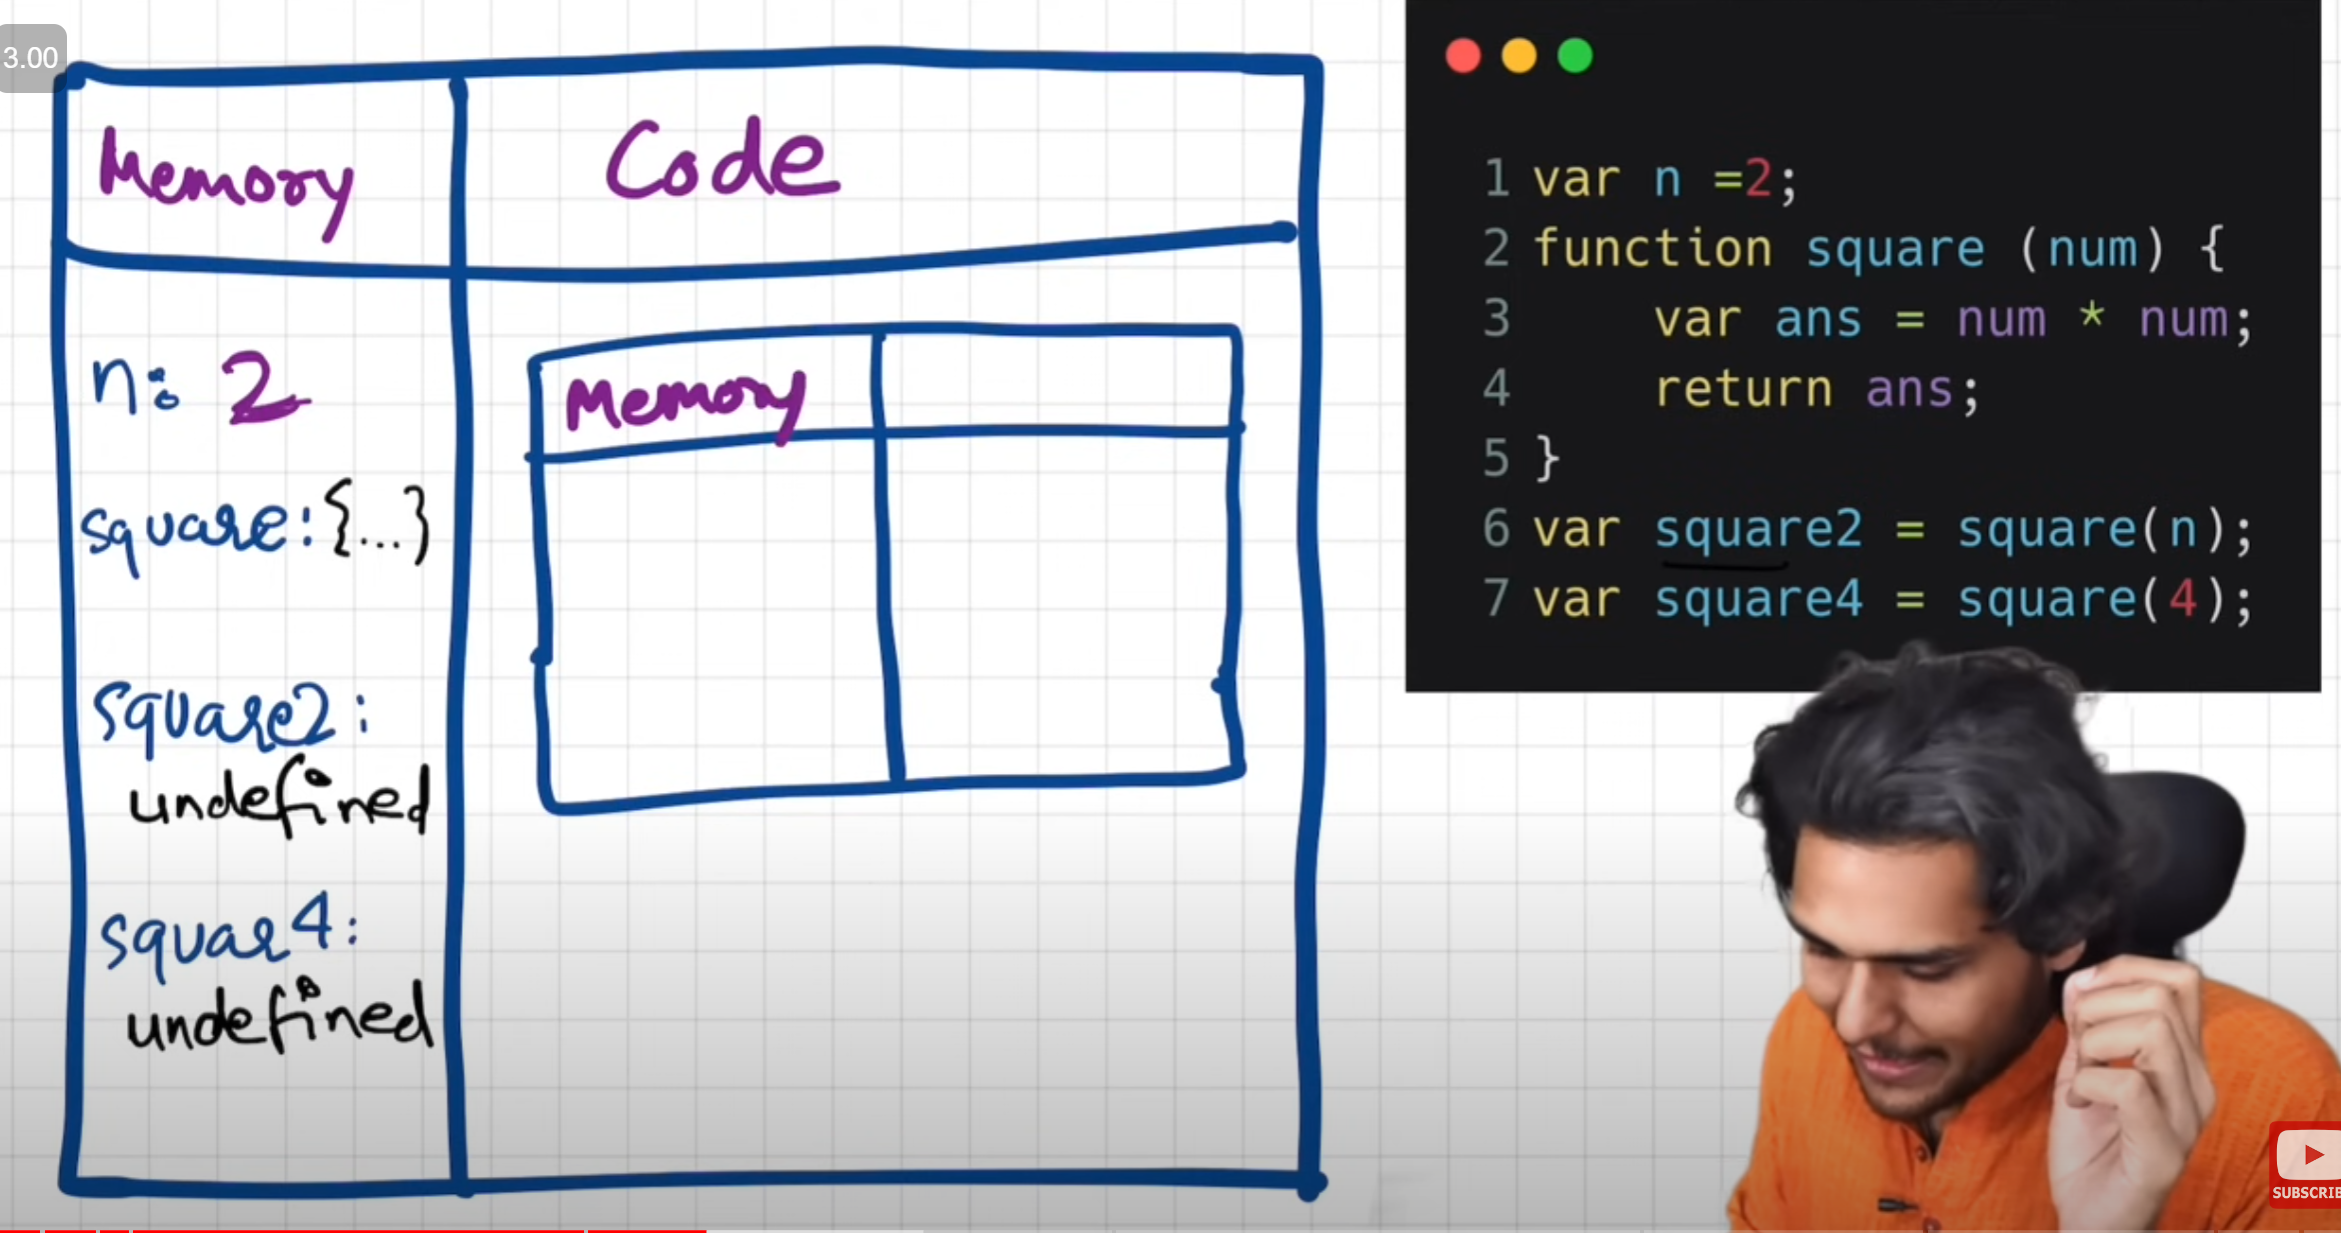 3.00
Memory
Code
n: 2
square: {...}
square2:
undefined
squar4:
undefined
Memory
1 var n =2;
2 function square (num) {
3     var ans = num * num;
4     return ans;
5 }
6 var square2 = square(n);
7 var square4 = square(4);
SUBSCRIBE